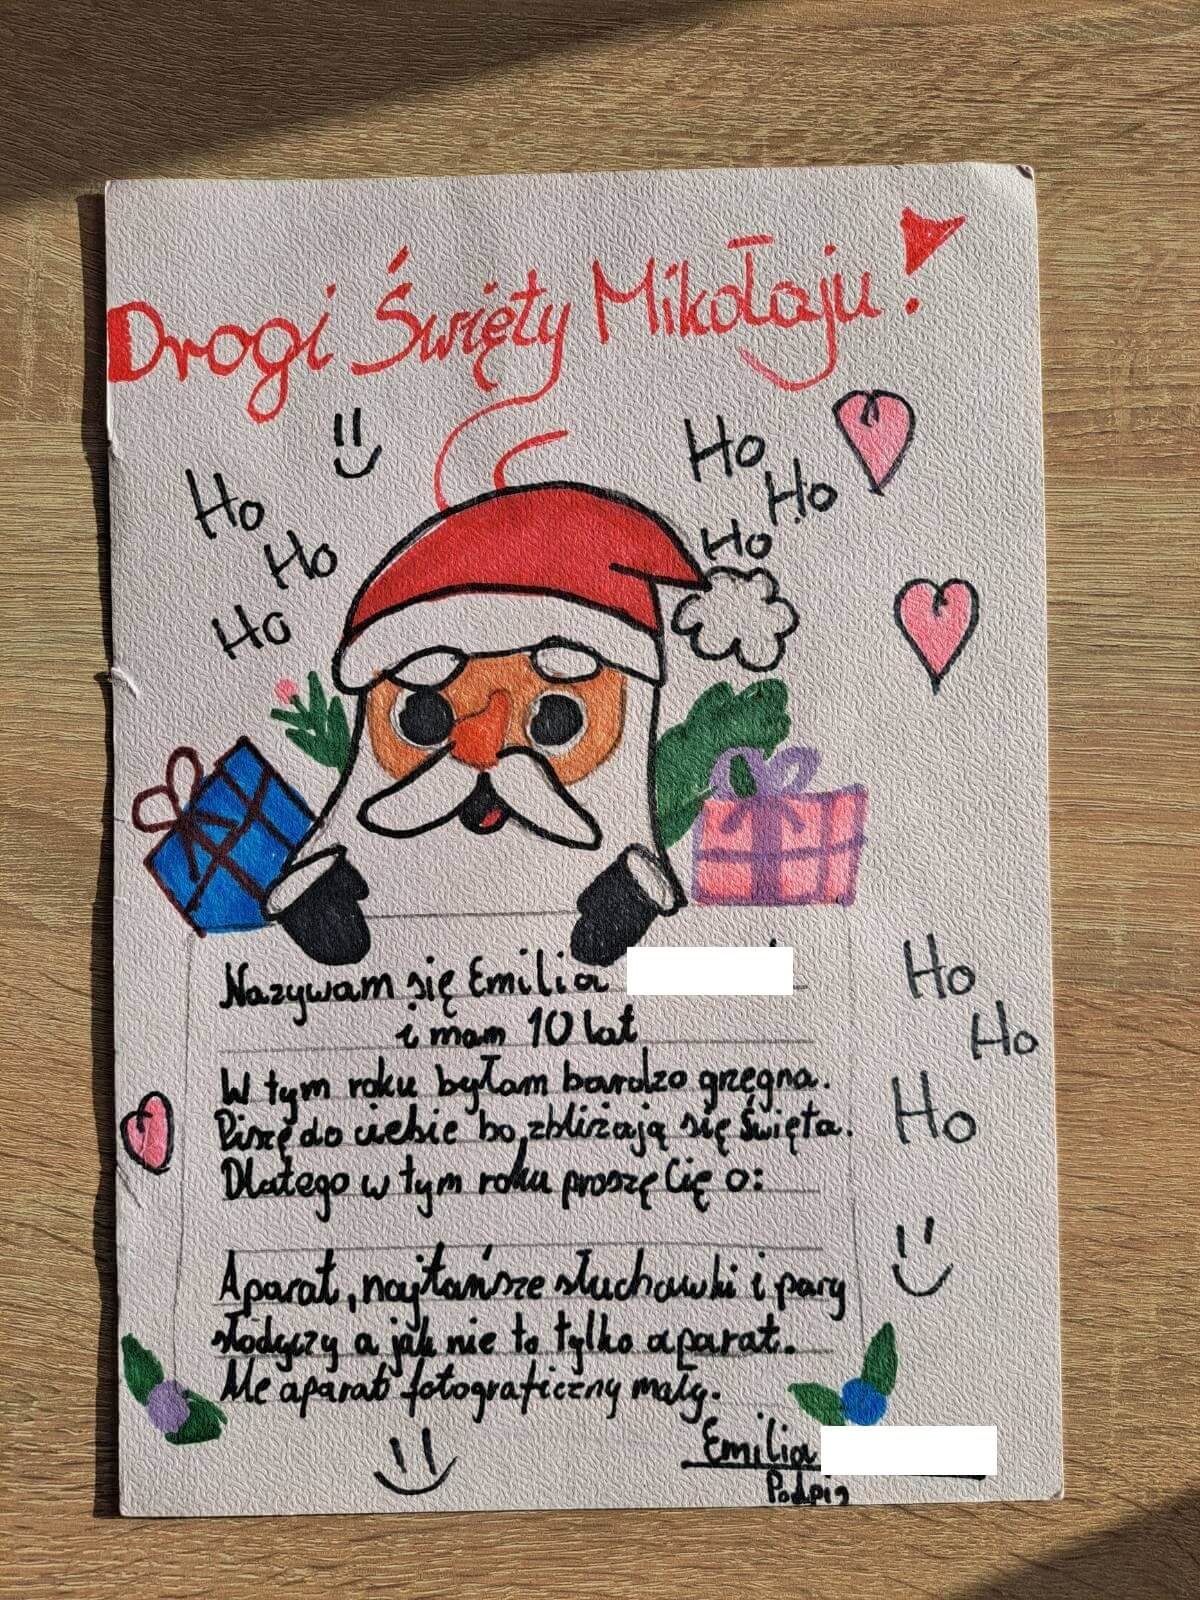 Drogi Święty Mikołaju!
Ho
Ho
Ho
Ho
Ho
Ho
Nazywam się Emilia
i mam 10 lat
W tym roku byłam bardzo grzegna.
Piszę do ciebie bo, zbliżają się Święta.
Dlatego w tym roku proszę Cię o:
Ho
Ho
Ho
Aparat, najtańsze słuchawki i pary
słodyczy a jak nie to tylko aparat.
Ale aparat fotograficzny mały.
Emilia
Podpis